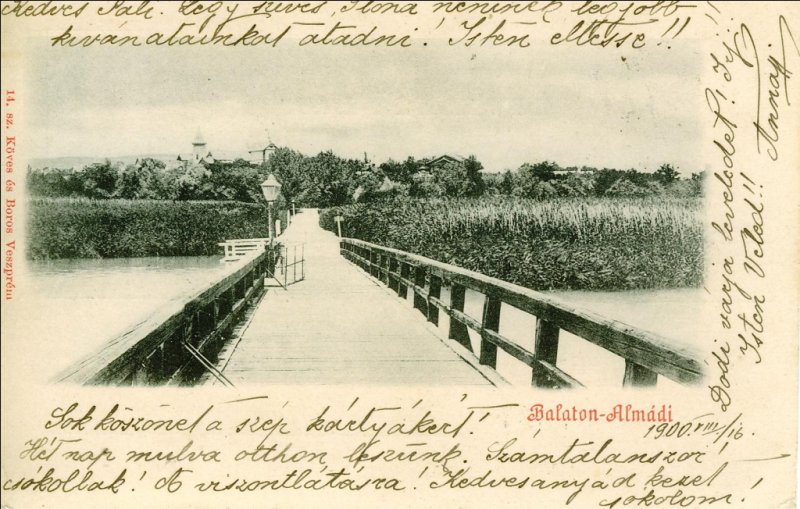 Kedves Pali! Légy szíves, Ilona néninek legjobb
kívánatainkat átadni! Isten éltesse!!
14. sz. Köves és Boros Veszprém
Balaton-Almádi
1900. VIII/16.
Sok köszönet a szép kártyákért!
Hét nap mulva otthon leszünk. Számtalanszor
csókollak! A viszontlátásra! Kedvesanyád kezét
csókolom!
Dodi várja leveledet! Íj.
Isten Veled!! Annus